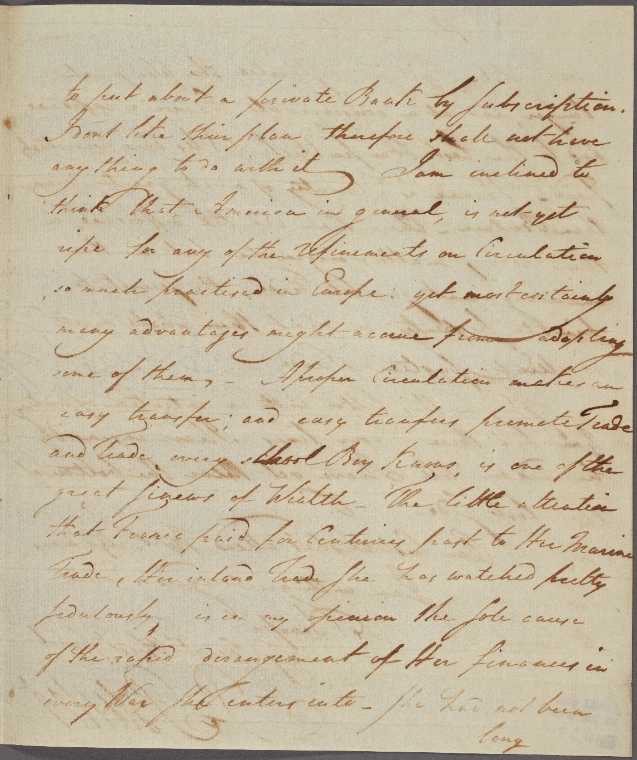 to put about a private Bank by Subscription.
I dont like their plan therefore shall not have
any thing to do with it I am inclined to
think that America in general, is not yet
ripe for any of the refinements on Circulation
so much practised in Europe. yet most certainly
many advantages might accrue from adopting
some of them, - A proper Circulation makes an
easy transfer; and easy transfers promote Trade
and Trade, every school Boy knows, is one of the
great sinews of Wealth - The little attention
that France paid for Centuries past to Her Marine
Trade, Her inland Trade She has watched pretty
sedulously, is in my opinion the sole cause
of the rapid derangement of Her finances in
every War She enters into - She had not been
long